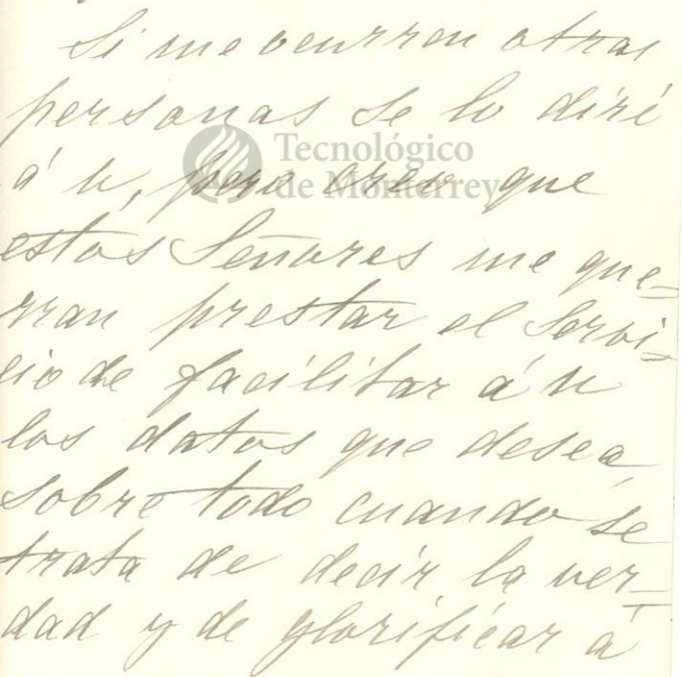 Si me ocurren otras
personas se lo diré
á U, pero creo que
estos Señores me que=
rran prestar el Servi=
cio de facilitar á U
los datos que desea,
sobre todo cuando se
trata de decir la ver=
dad y de glorificar á
Tecnológico
de Monterrey